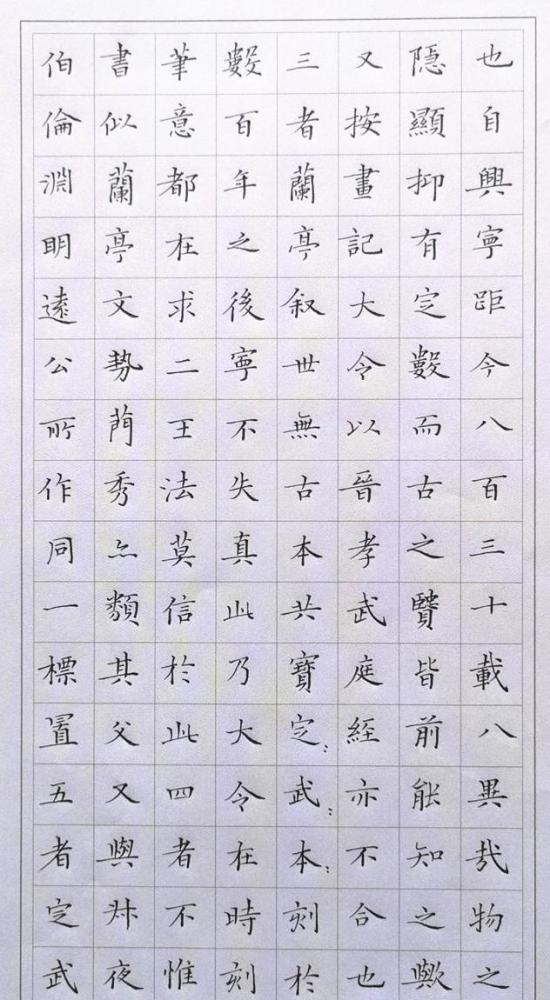 也自興寧距今八百三十載八異哉物之
隱顯抑有定數而古之賢皆前能知之歟
又按畫記大令以晉孝武庭經亦不合也
三者蘭亭叙世無古本共寶定武本刻於
數百年之後寧不失真此乃大令在時刻
筆意都在求二王法莫信於此四者不惟
書似蘭亭文勢蕳秀亦類其父又與叔夜
伯倫淵明遠公所作同一標置五者定武